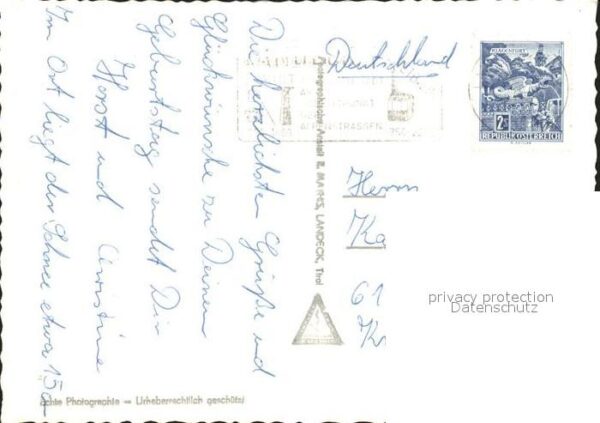 Die herzlichsten Grüße und
Glückwünsche zu Deinem
Geburtstag sendet Dir
Horst und Christine
Im Ort liegt der Schnee etwa 15
Deutschland
Herrn
Ka
61
K
KLAGENFURT
2
REPUBLIK ÖSTERREICH
STRASSEN
Photographische Anstalt R. MATHIS, LANDECK, Tirol
Echte Photographie – Urheberrechtlich geschützt
privacy protection
Datenschutz